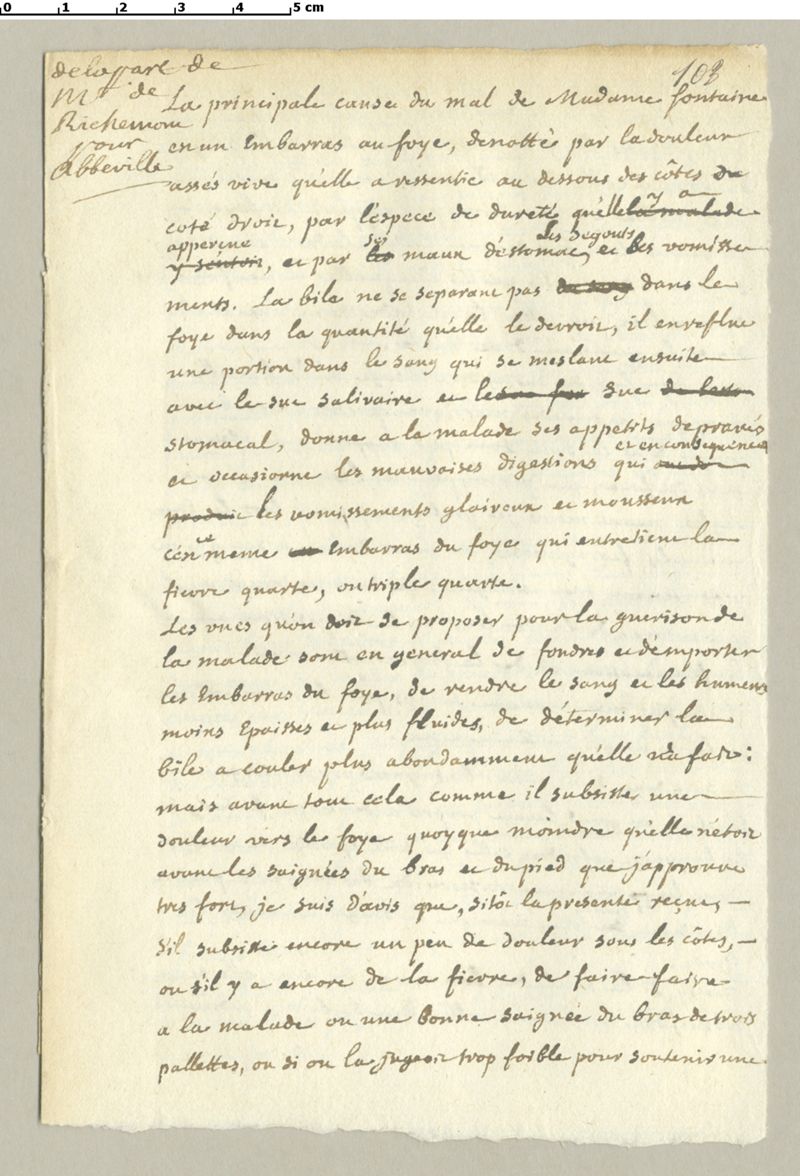 0 1 2 3 4 5 cm
108
de la part de
Mr de
Richemont
pour
Abbeville
La principale cause du mal de Madame fontaine
en un Embarras au foye, denotté par la douleur
assés vive qu'elle a ressentie au dessous des côtes du
coté droit, par l'éspece de dureté qu'elle la malade y a
apperçue
y sentoit, et par les ses maux d'éstomac, les degouts et les vomisse
ments. La bile ne se separant pas du sang dans le
foye dans la quantité qu'elle le devroit, il en reflue
une portion dans le sang qui se meslant ensuite
avec le suc salivaire et le suc
stomacal, donne a la malade ses appetits depravés
et occasionne les mauvaises digestions et en consequence qui
produit les vomissements glaireux et mousseux
c'ést ce meme Embarras du foye qui entretient la
fievre quarte, ou triple quarte.
Les vues qu'on doit se proposer pour la guerison de
la malade sont en general de fondre et d'émporter
les Embarras du foye, de rendre le sang et les humeurs
moins Epaisses et plus fluides, de déterminer la
bîle a couler plus abondamment qu'elle n'a fait:
mais avant tout cela comme il subsiste une
douleur vers le foye quoyque moindre qu'elle n'étoit
avant les saignées du bras et du pied que j'approuve
tres fort, je suis d'avis que, sitôt la presente reçue,
s'il subsiste encore un peu de douleur sous les côtes,
ou s'il y a encore de la fievre, de faire faire
a la malade ou une bonne saignée du bras de trois
pallettes, ou si on la jugeoit trop foible pour soutenir une